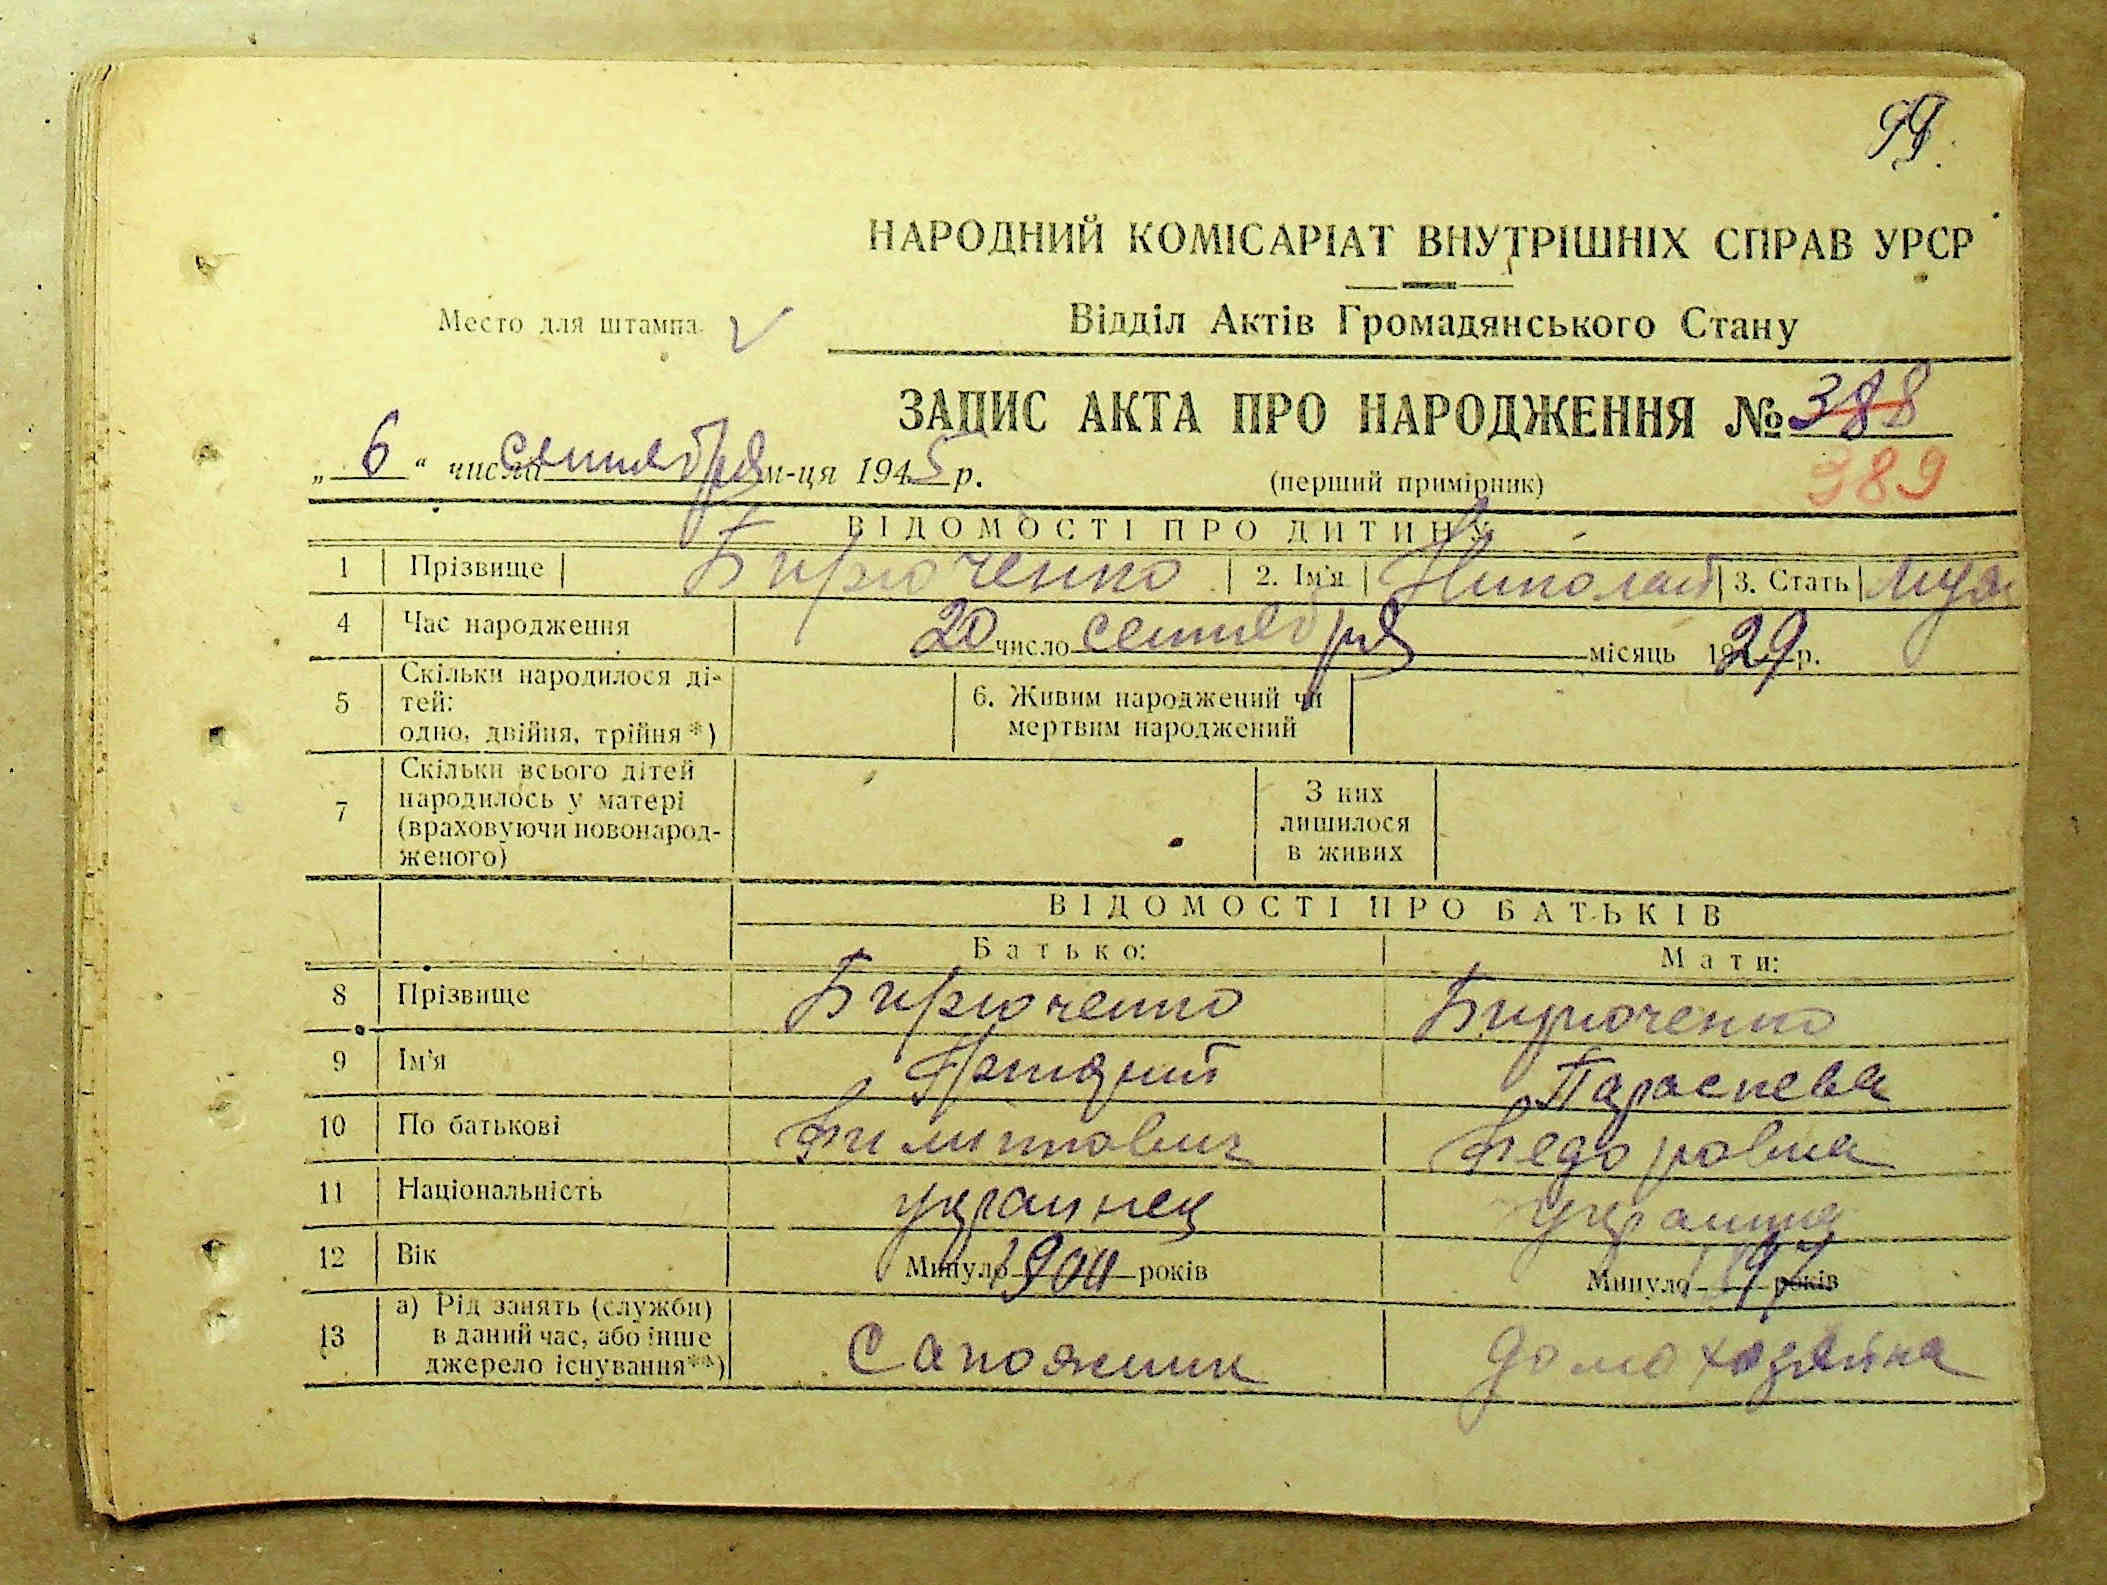 99.
НАРОДНИЙ КОМІСАРІАТ ВНУТРІШНІХ СПРАВ УРСР
Место для штампа.
Відділ Актів Громадянського Стану
ЗАПИС АКТА ПРО НАРОДЖЕННЯ № 388
389
„ 6 “ числа сентября м-ця 1945 р.
(перший примірник)
ВІДОМОСТІ ПРО ДИТИНУ
1 Прізвище Бирюченко 2. Ім'я Николай 3. Стать муж
4 Час народження 20 число сентября місяць 1929 р.
5 Скільки народилося ді-
тей:
одно, двійня, трійня*)
6. Живим народжений чи
мертвим народжений
7 Скільки всього дітей
народилось у матері
(враховуючи новонарод-
женого)
З них
лишилося
в живих
ВІДОМОСТІ ПРО БАТЬКІВ
Батько: Мати:
8 Прізвище Бирюченко Бирюченко
9 Ім'я Параскева
10 По батькові Филиппович Федоровна
11 Національність украинец украинка
12 Вік Минуло 1900 років Минуло років
13 а) Рід занять (служби)
в даний час, або інше
джерело існування**)
Сапожник домохозяйка